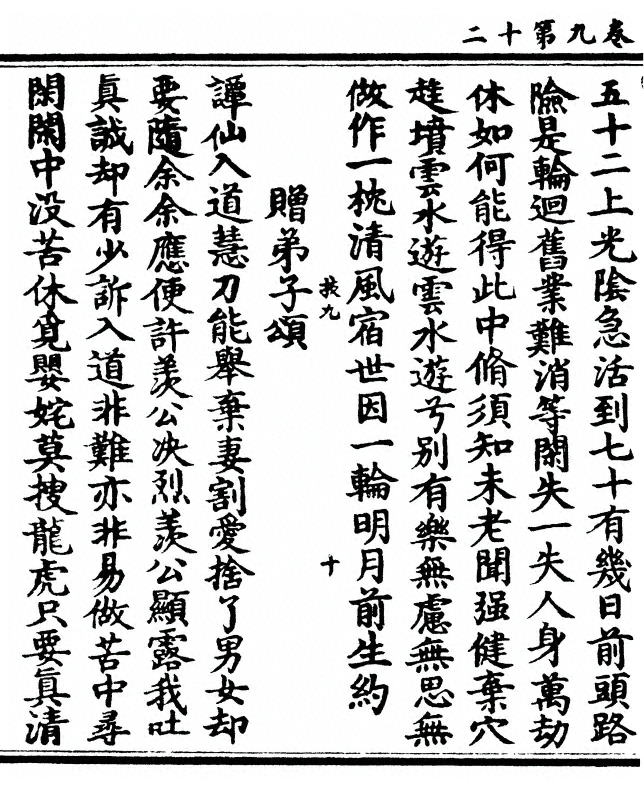 卷九第十二
五十二上光陰急活到七十有幾日前頭路
險是輪迴舊業難消等閑失一失人身萬劫
休如何能得此中脩須知未老聞强健棄穴
趖墳雲水遊雲水遊兮别有樂無慮無思無
做作一枕清風宿世因一輪明月前生約
扶九
十
贈弟子頌
譚仙入道慧刀能舉棄妻割愛捨了男女却
要隨余余應便許羨公决烈羨公顯露我吐
真誠却有少訴入道非難亦非易做苦中尋
閑閑中没苦休覓嬰姹莫搜龍虎只要真清